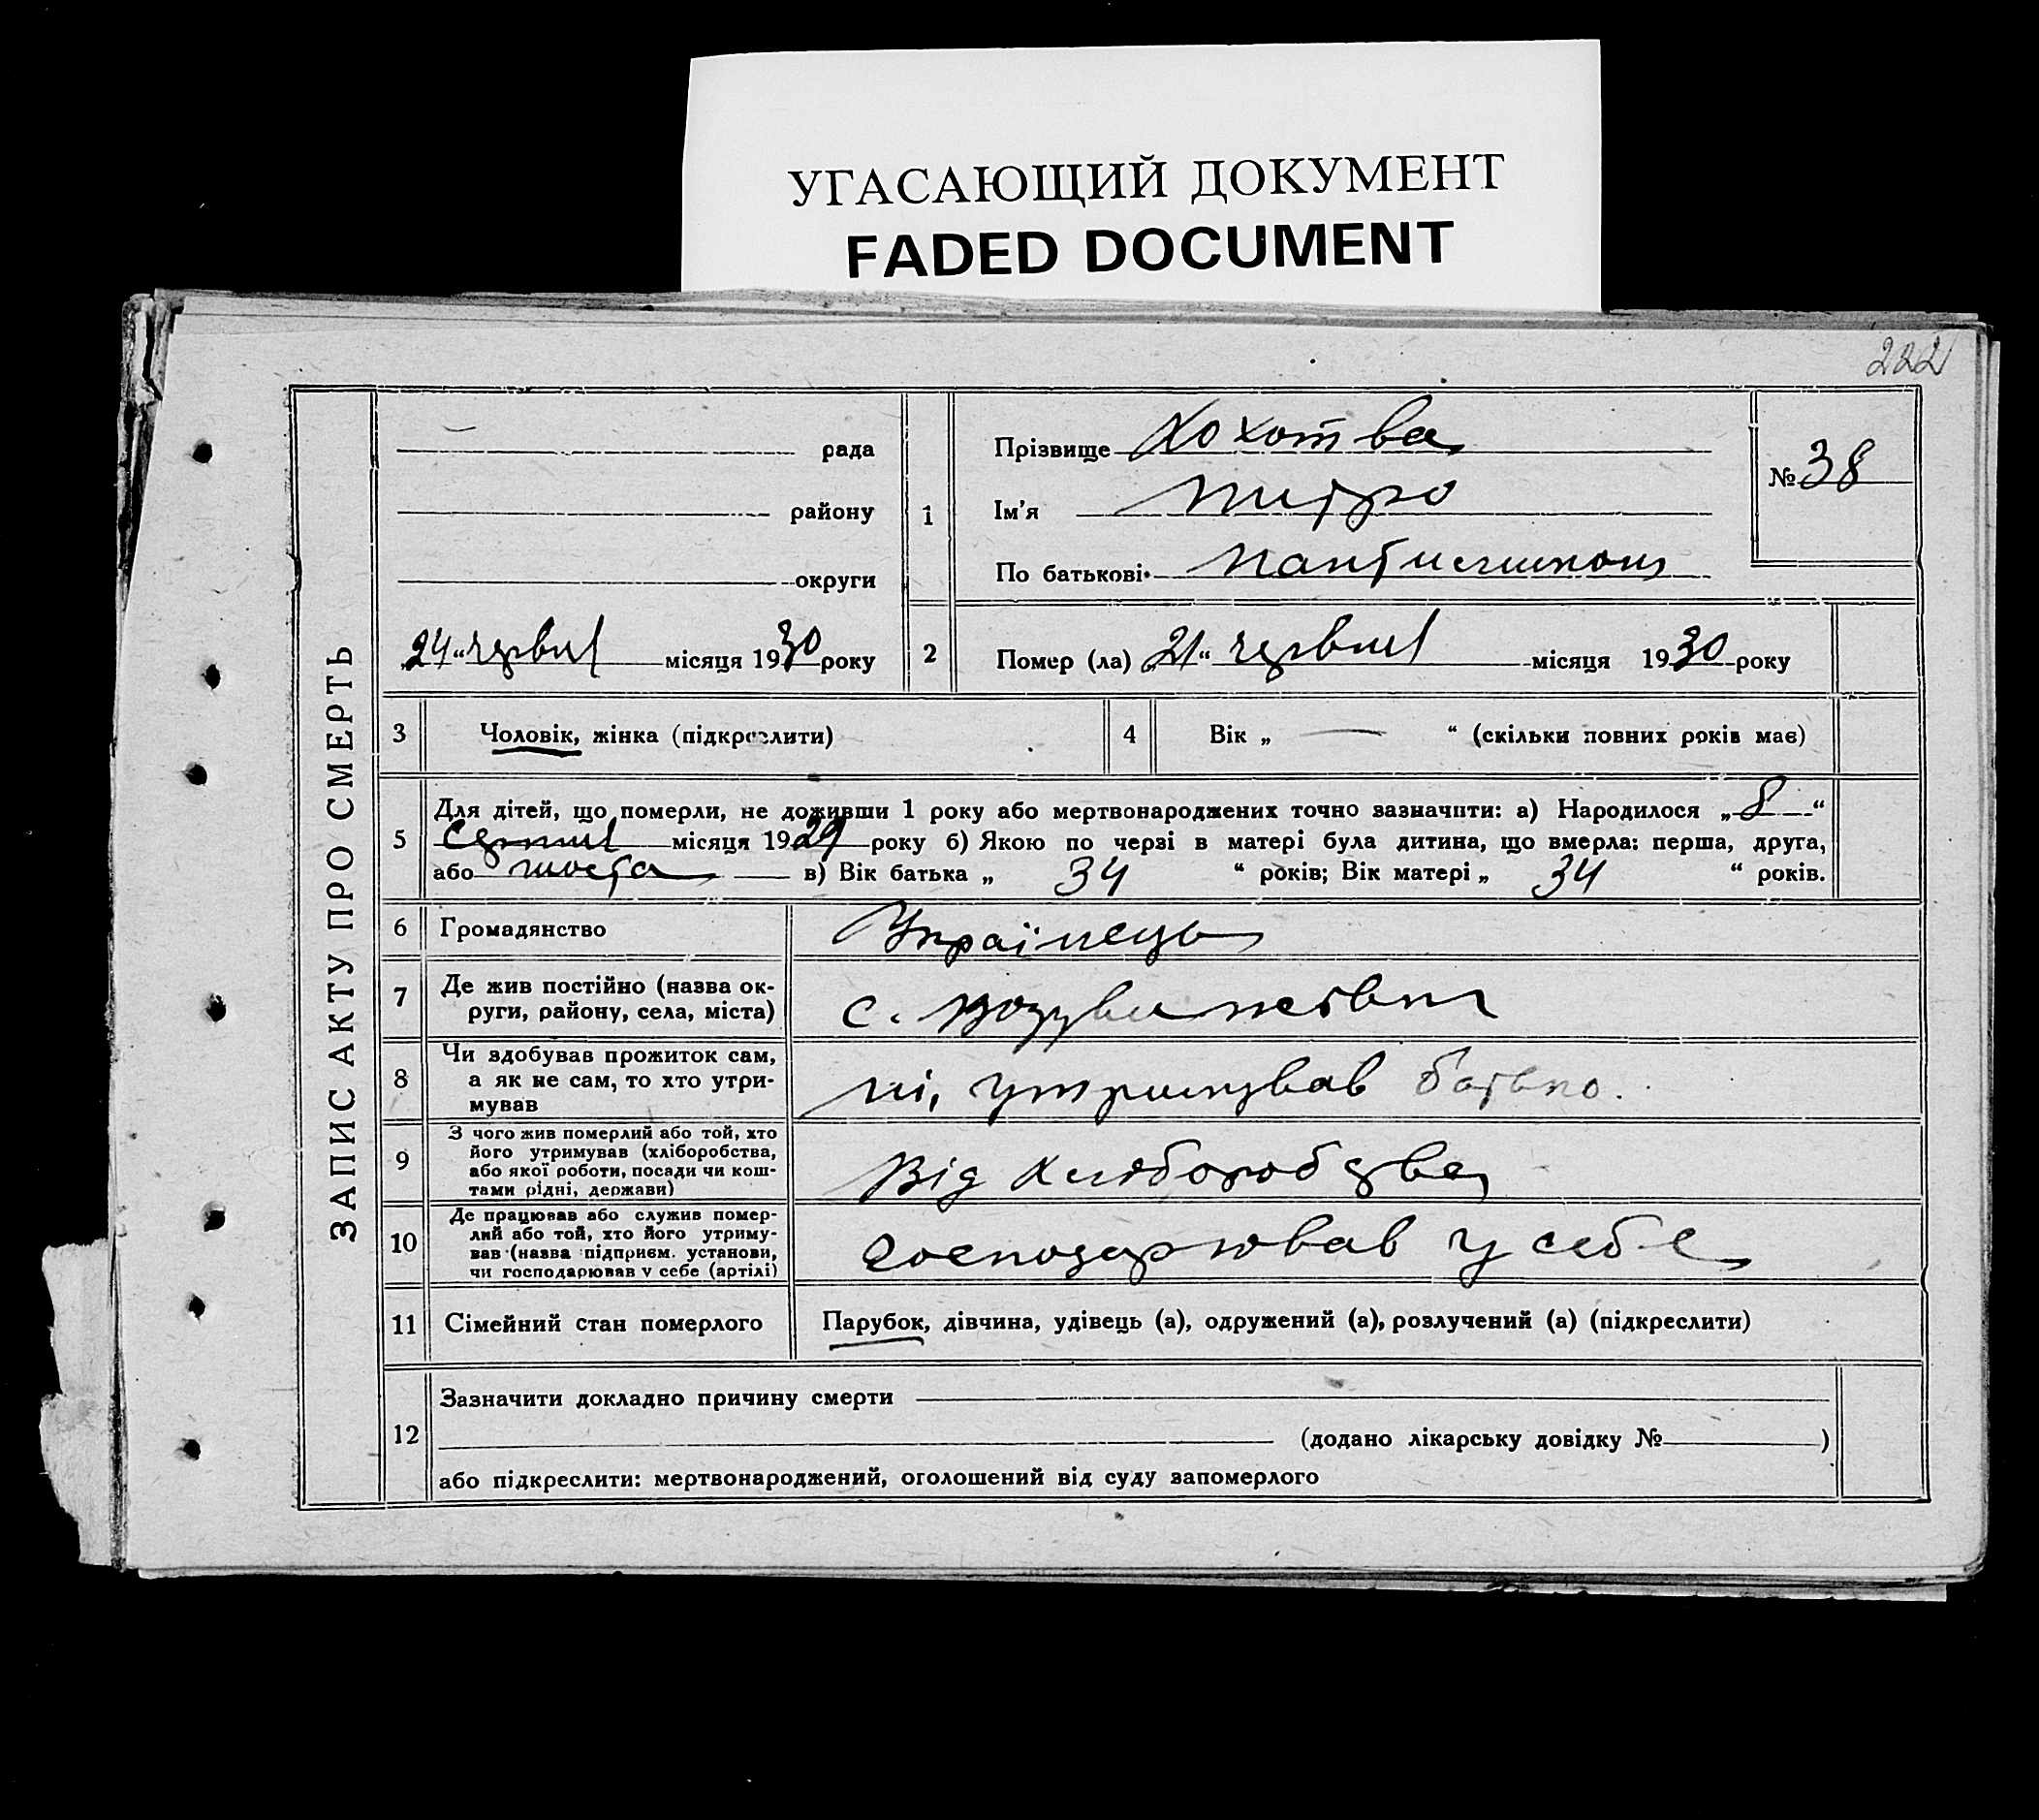 УГАСАЮЩИЙ ДОКУМЕНТ
FADED DOCUMENT
222
ЗАПИС АКТУ ПРО СМЕРТЬ
рада
району
округи
„24“ червня місяця 1930 року
1
Прізвище Хохотва
Ім'я Митро
По батькові
№ 38
2
Помер (ла) „21“ червня місяця 1930 року
3
Чоловік, жінка (підкреслити)
4
Вік „ — “ (скільки повних років має)
5
Для дітей, що померли, не доживши 1 року або мертвонароджених точно зазначити: а) Народилося „8“
серпня місяця 1929 року б) Якою по черзі в матері була дитина, що вмерла: перша, друга,
або шоста в) Вік батька „ 34 “ років; Вік матері „ 34 “ років.
6
Громадянство
Українець
7
Де жив постійно (назва ок-
руги, району, села, міста)
с.
8
Чи здобував прожиток сам,
а як не сам, то хто утри-
мував
ні, утримував батько.
9
З чого жив померлий або той, хто
його утримував (хліборобства,
або якої роботи, посади чи кош-
тами рідні, держави)
Від хліборобства
10
Де працював або служив помер-
лий або той, хто його утриму-
вав (назва підприєм. установи,
чи господарював у себе (артілі)
господарював у себе
11
Сімейний стан померлого
Парубок, дівчина, удівець (а), одружений (а), розлучений (а) (підкреслити)
12
Зазначити докладно причину смерти
(додано лікарську довідку № )
або підкреслити: мертвонароджений, оголошений від суду запомерлого